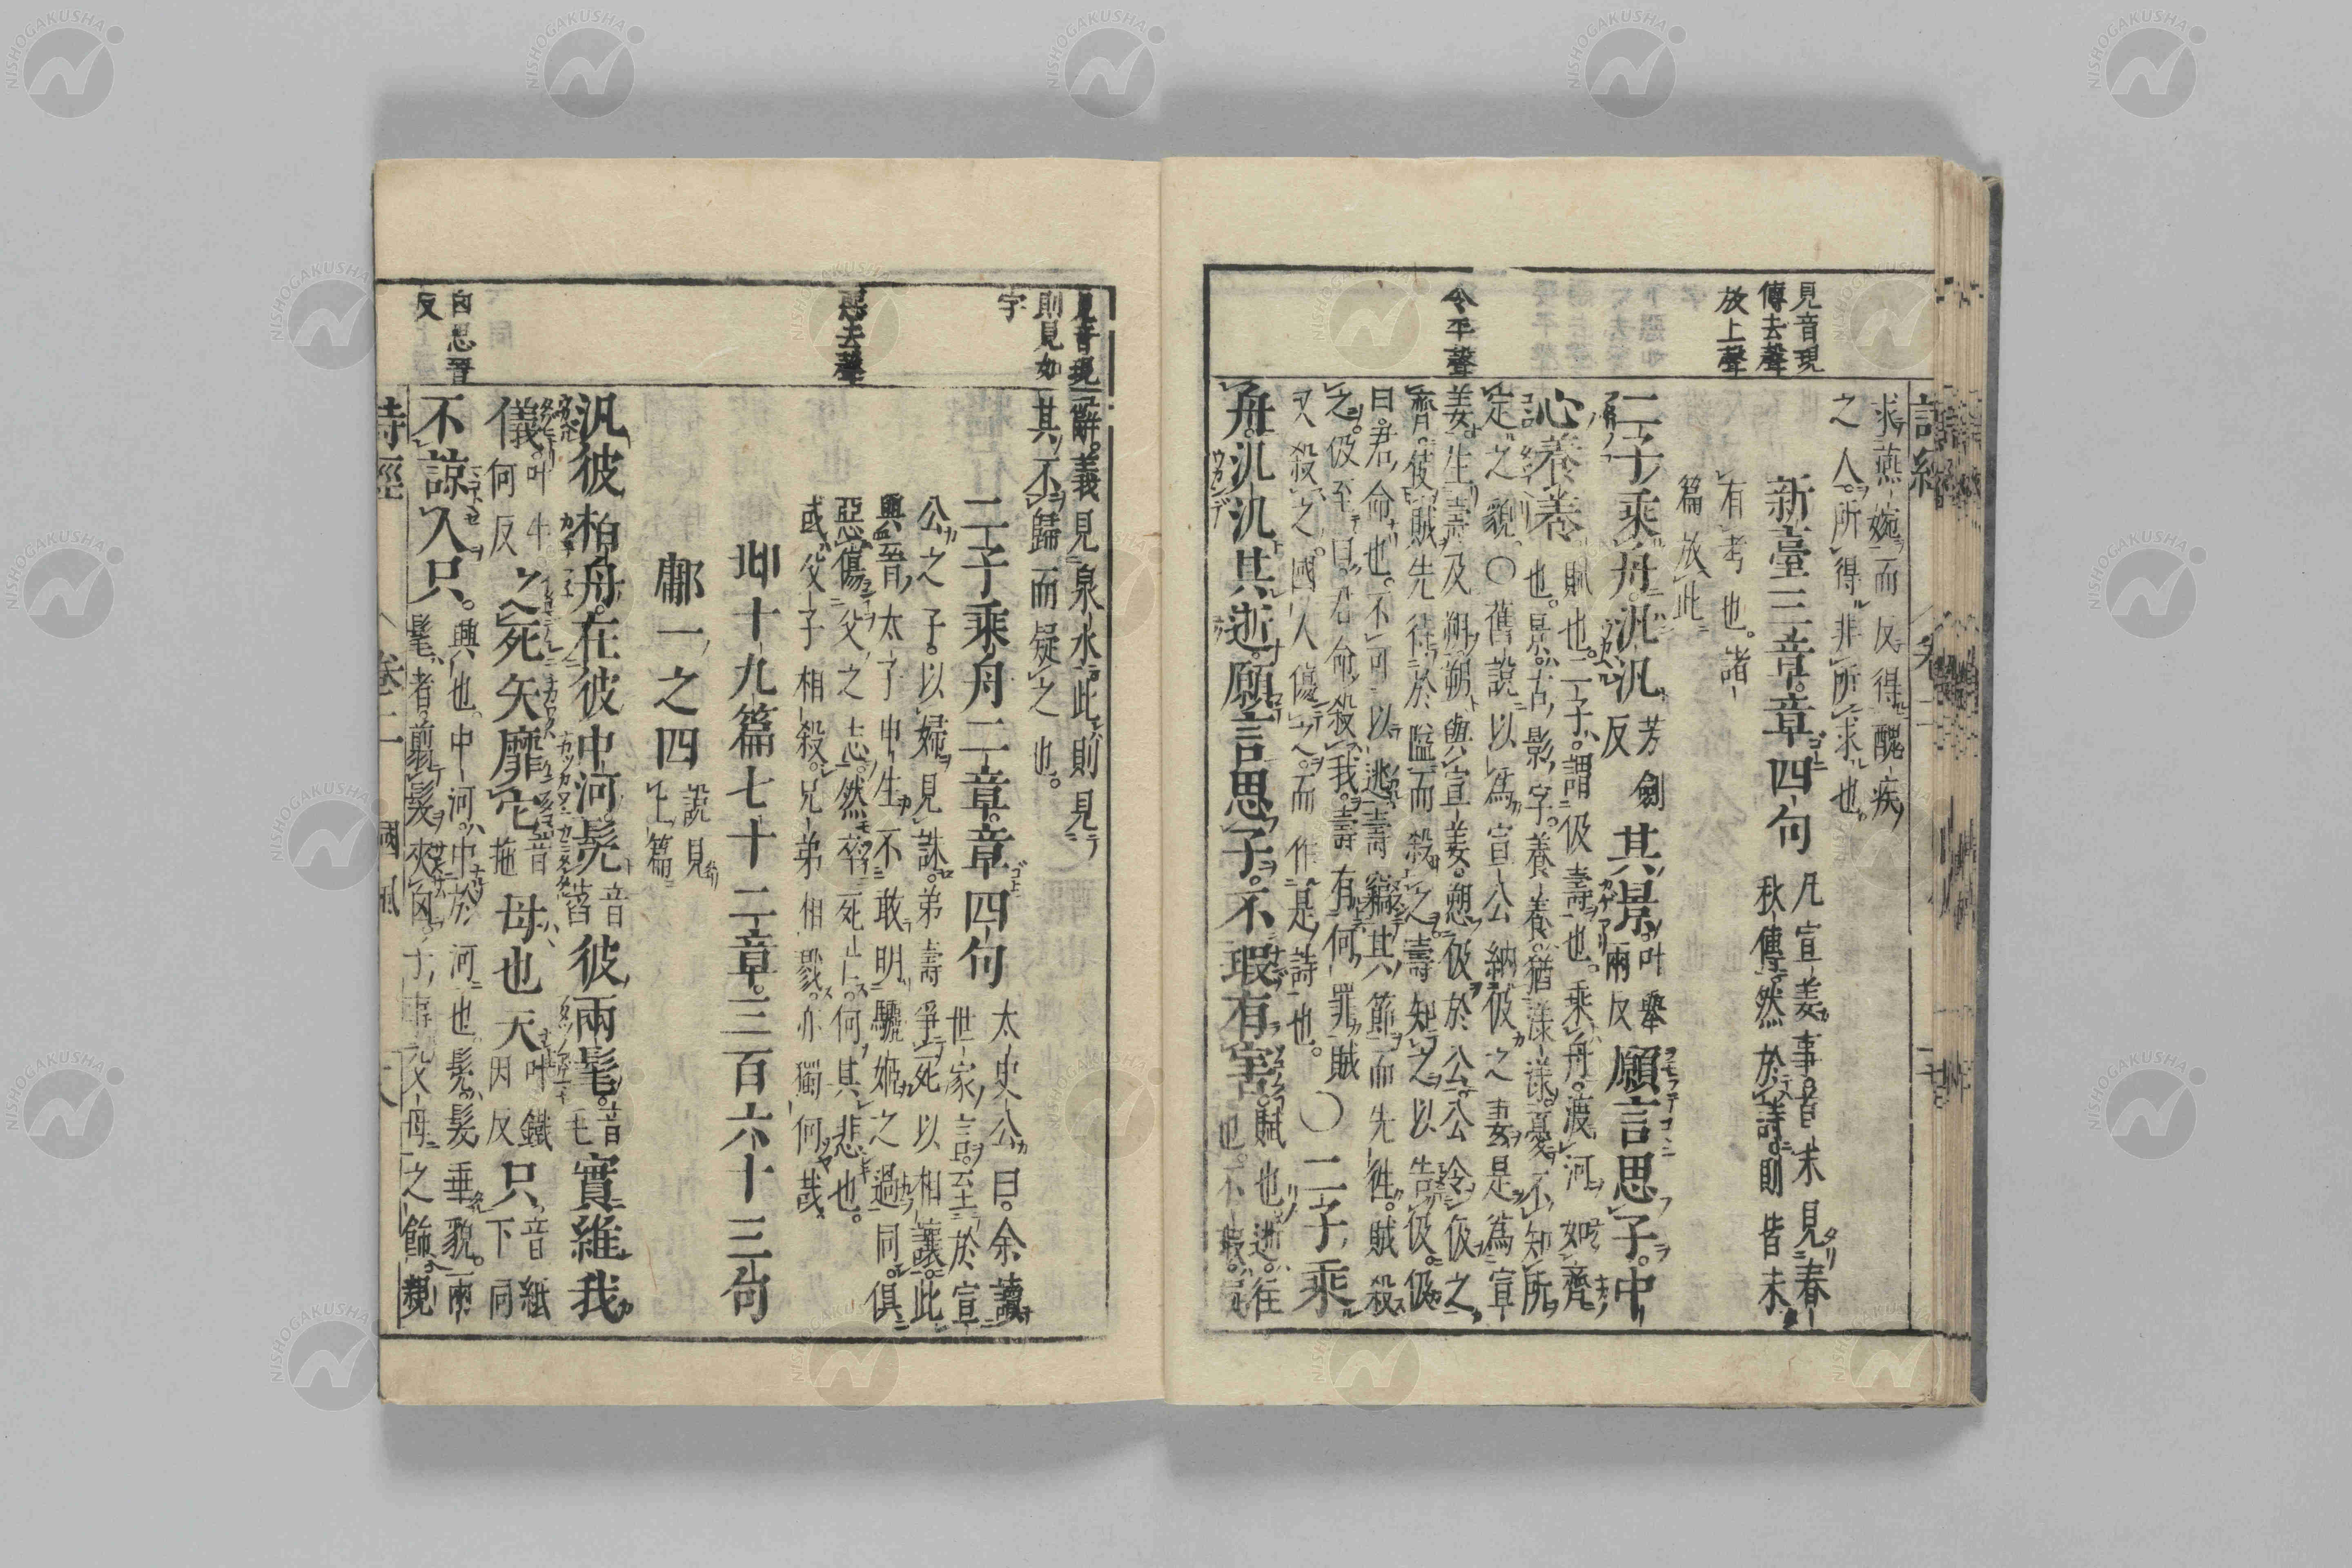 見音現
傳去聲
放上聲
令平聲
求燕婉而反得醜疾
之人所得非所求也
新臺三章章四句
凡宣姜事首末見春
秋傳然於詩則皆未
有考也諸
篇放此
二子乘舟汎汎
芳劍
反
其景
叶舉
兩反
願言思子中
心養養
賦也二子謂伋壽也乘舟渡河如齊
也景古影字養養猶漾漾憂不知所
定之貌○舊說以爲宣公納伋之妻是爲宣
姜生壽及朔朔與宣姜愬伋於公公令伋之
齊使賊先待於隘而殺之壽知之以告伋伋
曰君命也不可以逃壽竊其節而先往賊殺
之伋至曰君命殺我壽有何罪賊
又殺之國人傷之而作是詩也
○二子乘
舟汎汎其逝願言思子不瑕有害
賦也逝往
也不瑕
見音現
則見如
字
惡去聲
囟思晉
反
辭義見泉水此則見
其不歸而疑之也
二子乘舟二章章四句
太史公曰余讀
世家言至於宣
公之子以婦見誅弟壽爭死以相讓此
與晉太子申生不敢明驪姬之過同俱
惡傷父之志然卒死亡何其悲也
或父子相殺兄弟相戮亦獨何哉
邶十九篇七十二章三百六十三句
鄘一之四
說見
上篇
汎彼柏舟在彼中河髧彼兩髦
音
毛
實維我
儀
叶牛
何反
之死矢靡它
音
拖
母也天
叶鐵
因反
只
音紙
下同
不諒人只
興也中河中於河也髧髮垂貌兩
髦者翦髮夾囟子事父母之飾親
詩經
卷二
國風